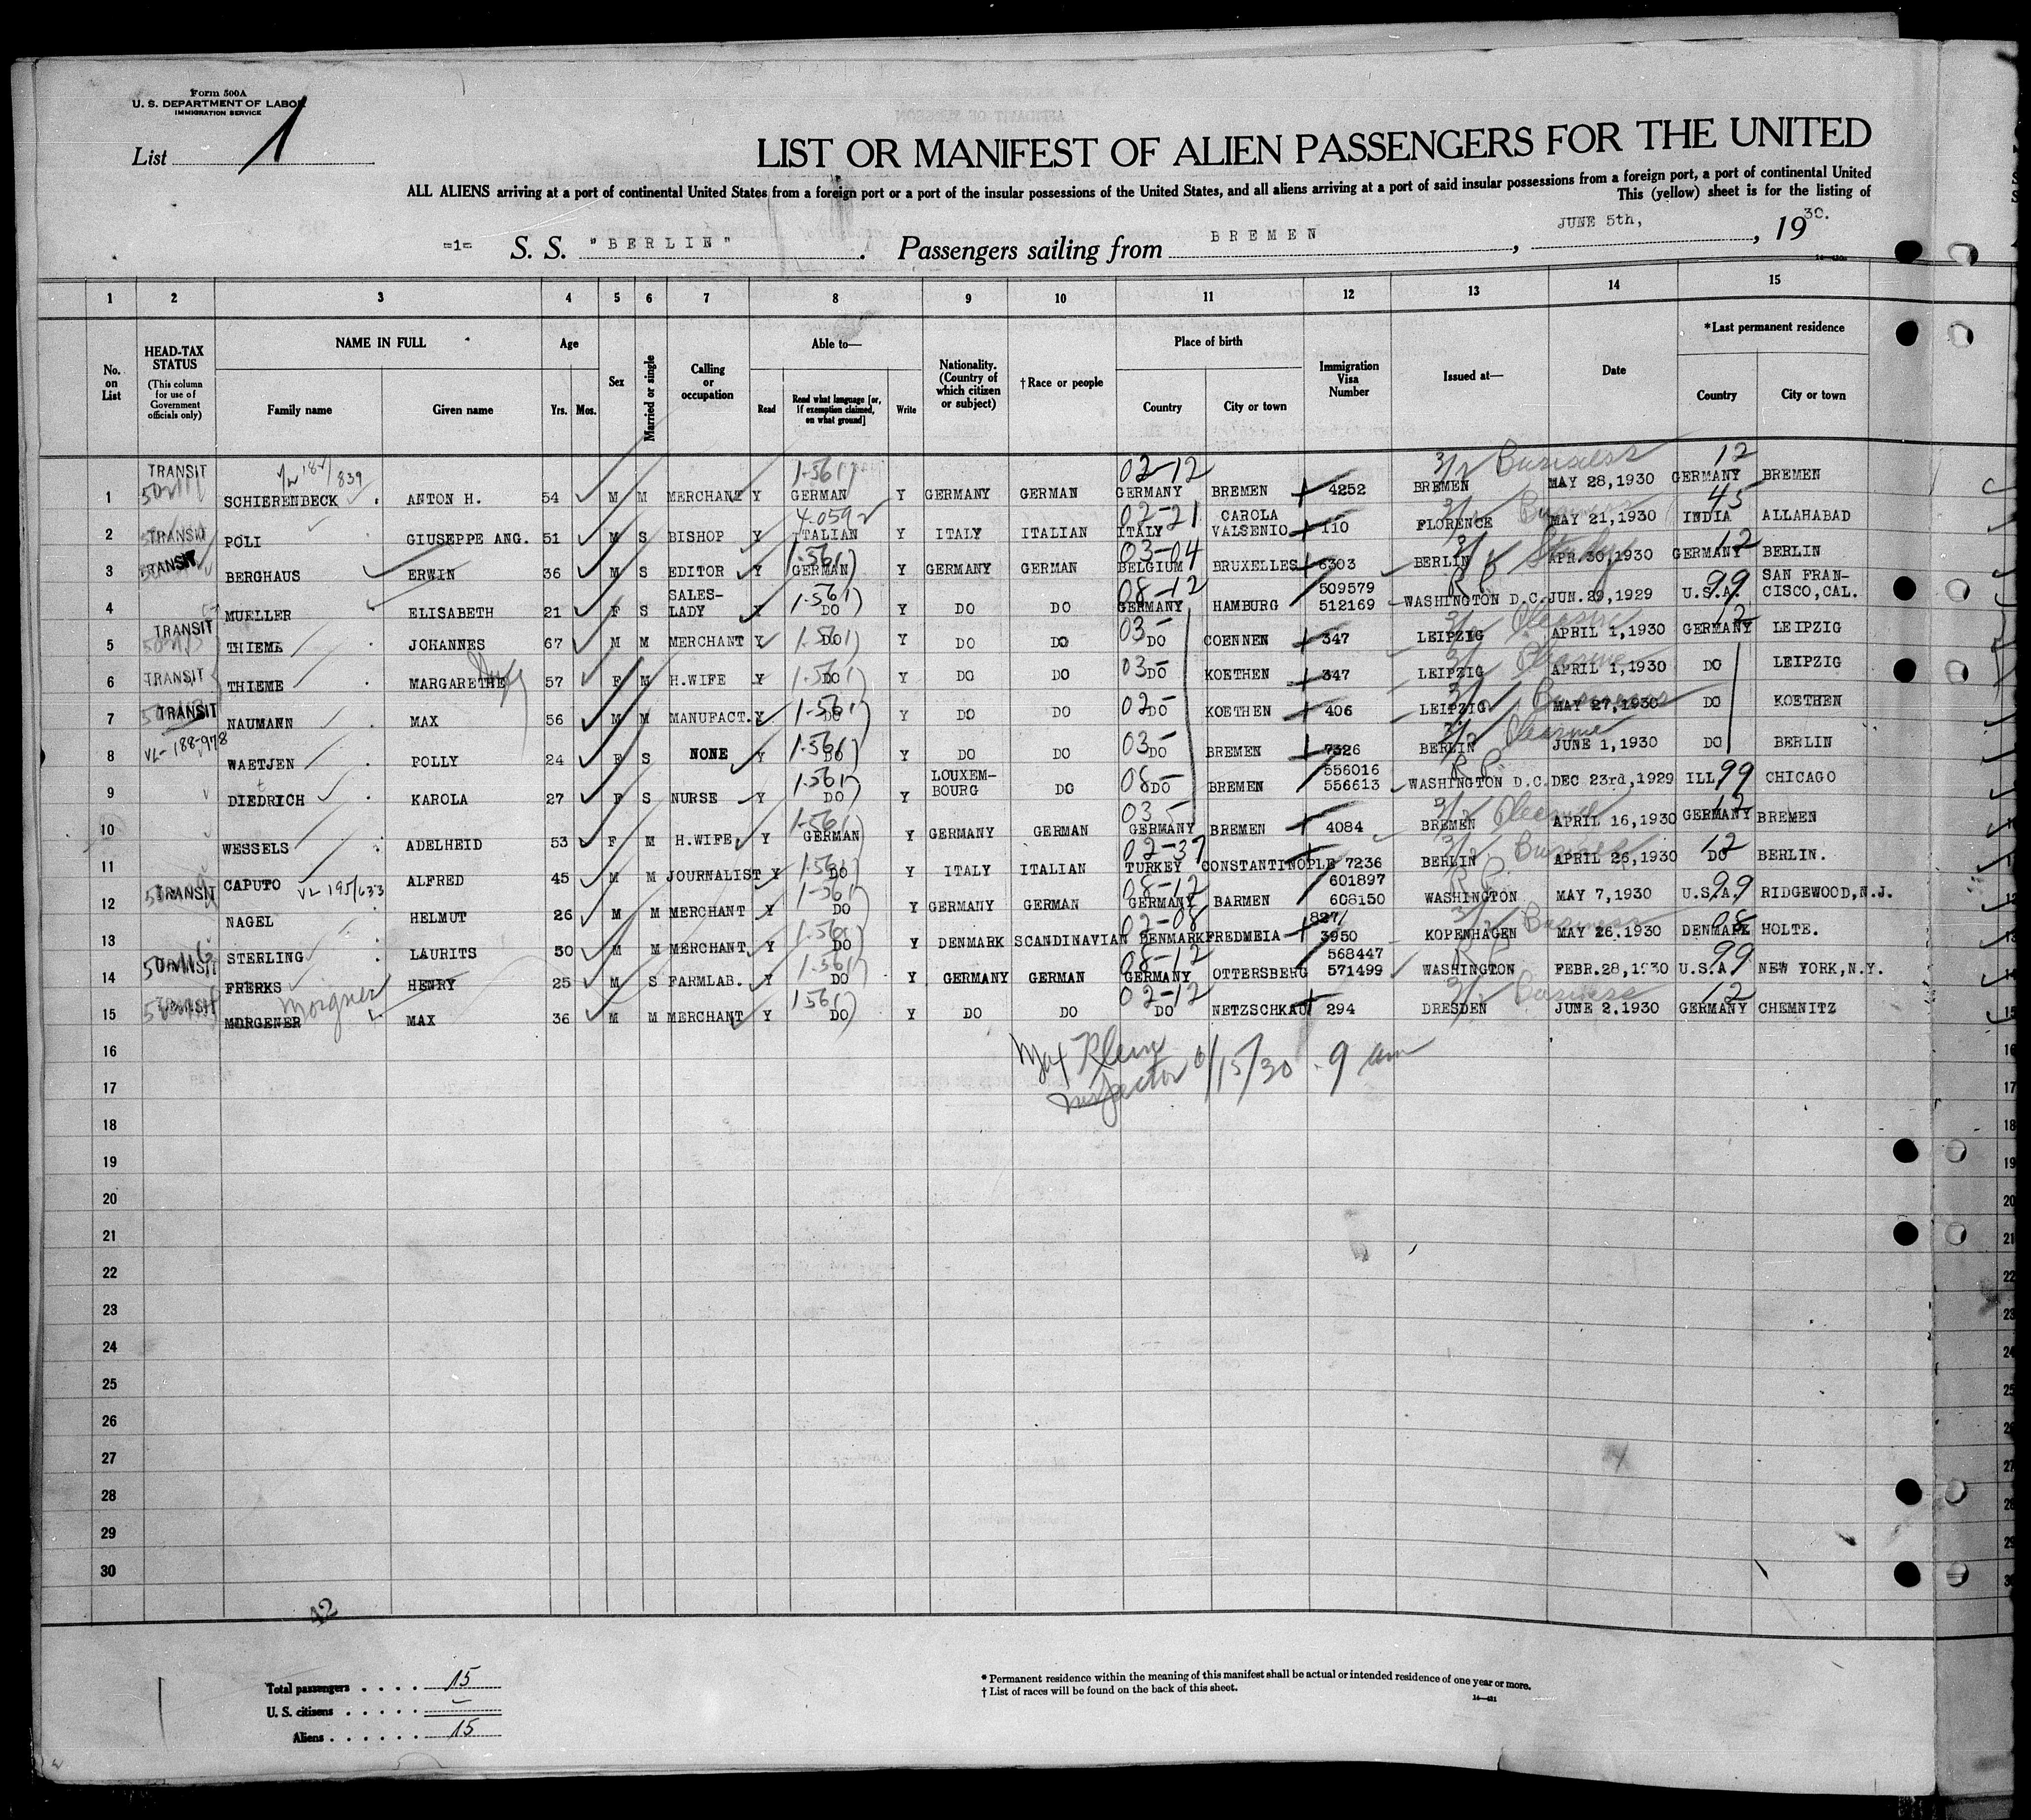 Form 500A
U. S. DEPARTMENT OF LABOR
IMMIGRATION SERVICE
List 1
LIST OR MANIFEST OF ALIEN PASSENGERS FOR THE UNITED
ALL ALIENS arriving at a port of continental United States from a foreign port or a port of the insular possessions of the United States, and all aliens arriving at a port of said insular possessions from a foreign port, a port of continental United
This (yellow) sheet is for the listing of
-1- S. S. "BERLIN". Passengers sailing from BREMEN, JUNE 5th, 1930.
1 2 3 4 5 6 7 8 9 10 11 12 13 14 15
No. on List
HEAD-TAX STATUS
(This column for use of Government officials only)
NAME IN FULL
Family name Given name
Age
Yrs. Mos.
Sex
Married or single
Calling or occupation
Able to—
Read Read what language [or, if exemption claimed, on what ground] Write
Nationality. (Country of which citizen or subject)
† Race or people
Place of birth
Country City or town
Immigration Visa Number
Issued at—
Date
*Last permanent residence
Country City or town
1 TRANSIT SCHIERENBECK ANTON H. 54 M M MERCHANT Y GERMAN Y GERMANY GERMAN 02-12 GERMANY BREMEN 4252 BREMEN Business MAY 28,1930 12 GERMANY BREMEN
2 TRANSIT POLI GIUSEPPE ANG. 51 M S BISHOP Y ITALIAN Y ITALY ITALIAN 02-21 ITALY CAROLA VALSENIO 110 FLORENCE MAY 21,1930 45 INDIA ALLAHABAD
3 TRANSIT BERGHAUS ERWIN 36 M S EDITOR Y GERMAN Y GERMANY GERMAN 03-04 BELGIUM BRUXELLES 6303 BERLIN Study APR.30,1930 12 GERMANY BERLIN
4 MUELLER ELISABETH 21 F S SALES-LADY Y DO Y DO DO 08-12 GERMANY HAMBURG 509579 512169 RP WASHINGTON D.C. JUN.29,1929 99 U.S.A. SAN FRANCISCO,CAL.
5 TRANSIT THIEME JOHANNES 67 M M MERCHANT Y DO Y DO DO 03- DO COENNEN 347 LEIPZIG Pleasure APRIL 1,1930 12 GERMANY LEIPZIG
6 TRANSIT THIEME MARGARETHE Wife 57 F M H.WIFE Y DO Y DO DO 03- DO KOETHEN 347 LEIPZIG Pleasure APRIL 1,1930 DO LEIPZIG
7 TRANSIT NAUMANN MAX 56 M M MANUFACT. Y DO Y DO DO 02- DO KOETHEN 406 LEIPZIG Business MAY 27,1930 DO KOETHEN
8 VL-188-978 WAETJEN POLLY 24 F S NONE Y DO Y DO DO 03- DO BREMEN 7326 BERLIN Pleasure JUNE 1,1930 DO BERLIN
9 DIEDRICH KAROLA 27 F S NURSE Y DO Y LOUXEMBOURG DO 08- DO BREMEN 556016 556613 RP WASHINGTON D.C. DEC 23rd,1929 ILL 99 CHICAGO
10 WESSELS ADELHEID 53 F M H.WIFE. Y GERMAN Y GERMANY GERMAN 03- GERMANY BREMEN 4084 BREMEN Pleasure APRIL 16,1930 12 GERMANY BREMEN
11 TRANSIT CAPUTO VL 195/633 ALFRED 45 M M JOURNALIST Y DO Y ITALY ITALIAN 02-37 TURKEY CONSTANTINOPLE 7236 BERLIN Business APRIL 26,1930 12 DO BERLIN.
12 NAGEL HELMUT 26 M M MERCHANT Y DO Y GERMANY GERMAN 08-12 GERMANY BARMEN 601897 608150 RP WASHINGTON MAY 7,1930 99 U.S.A. RIDGEWOOD,N.J.
13 TRANSIT STERLING LAURITS 50 M M MERCHANT Y DO Y DENMARK SCANDINAVIAN 02-08 DENMARK FREDMEIA 827/3950 KOPENHAGEN Business MAY 26.1930 08 DENMARK HOLTE.
14 FRERKS HENRY 25 M S FARMLAB. Y DO Y GERMANY GERMAN 08-12 GERMANY OTTERSBERG 568447 571499 RP WASHINGTON FEBR.28,1930 99 U.S.A NEW YORK,N.Y.
15 TRANSIT MORGENER Moigner MAX 36 M M MERCHANT Y DO Y DO DO 02-12 DO NETZSCHKAU 294 DRESDEN Business JUNE 2.1930 12 GERMANY CHEMNITZ
16 Max Klein
17 Inspector 6/15/30 . 9 am
18
19
20
21
22
23
24
25
26
27
28
29
30
42
Total passengers . . . . 15
U. S. citizens . . . . . –
Aliens . . . . . . 15
* Permanent residence within the meaning of this manifest shall be actual or intended residence of one year or more.
† List of races will be found on the back of this sheet.